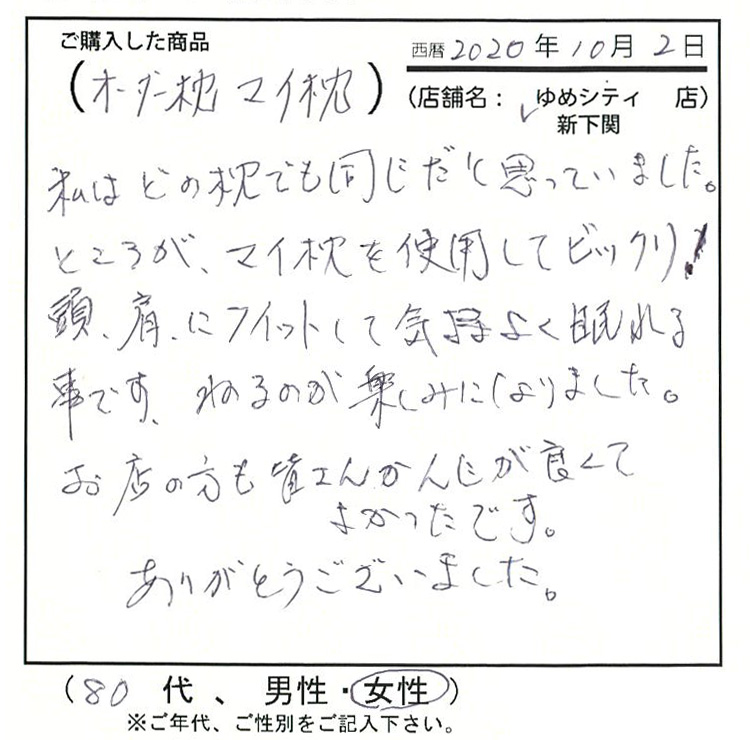 ご購入した商品
西暦2020年10月2日
(オーダー枕 マイ枕)
(店舗名: ゆめシティ 店)
新下関
私はどの枕でも同じだと思っていました。
ところが、マイ枕を使用してビックリ!
頭、肩、にフィットして気持よく眠れる
事です、ねるのが楽しみになりました。
お店の方も皆さんかんじが良くて
よかったです。
ありがとうございました。
(80 代、男性・女性)
※ご年代、ご性別をご記入下さい。